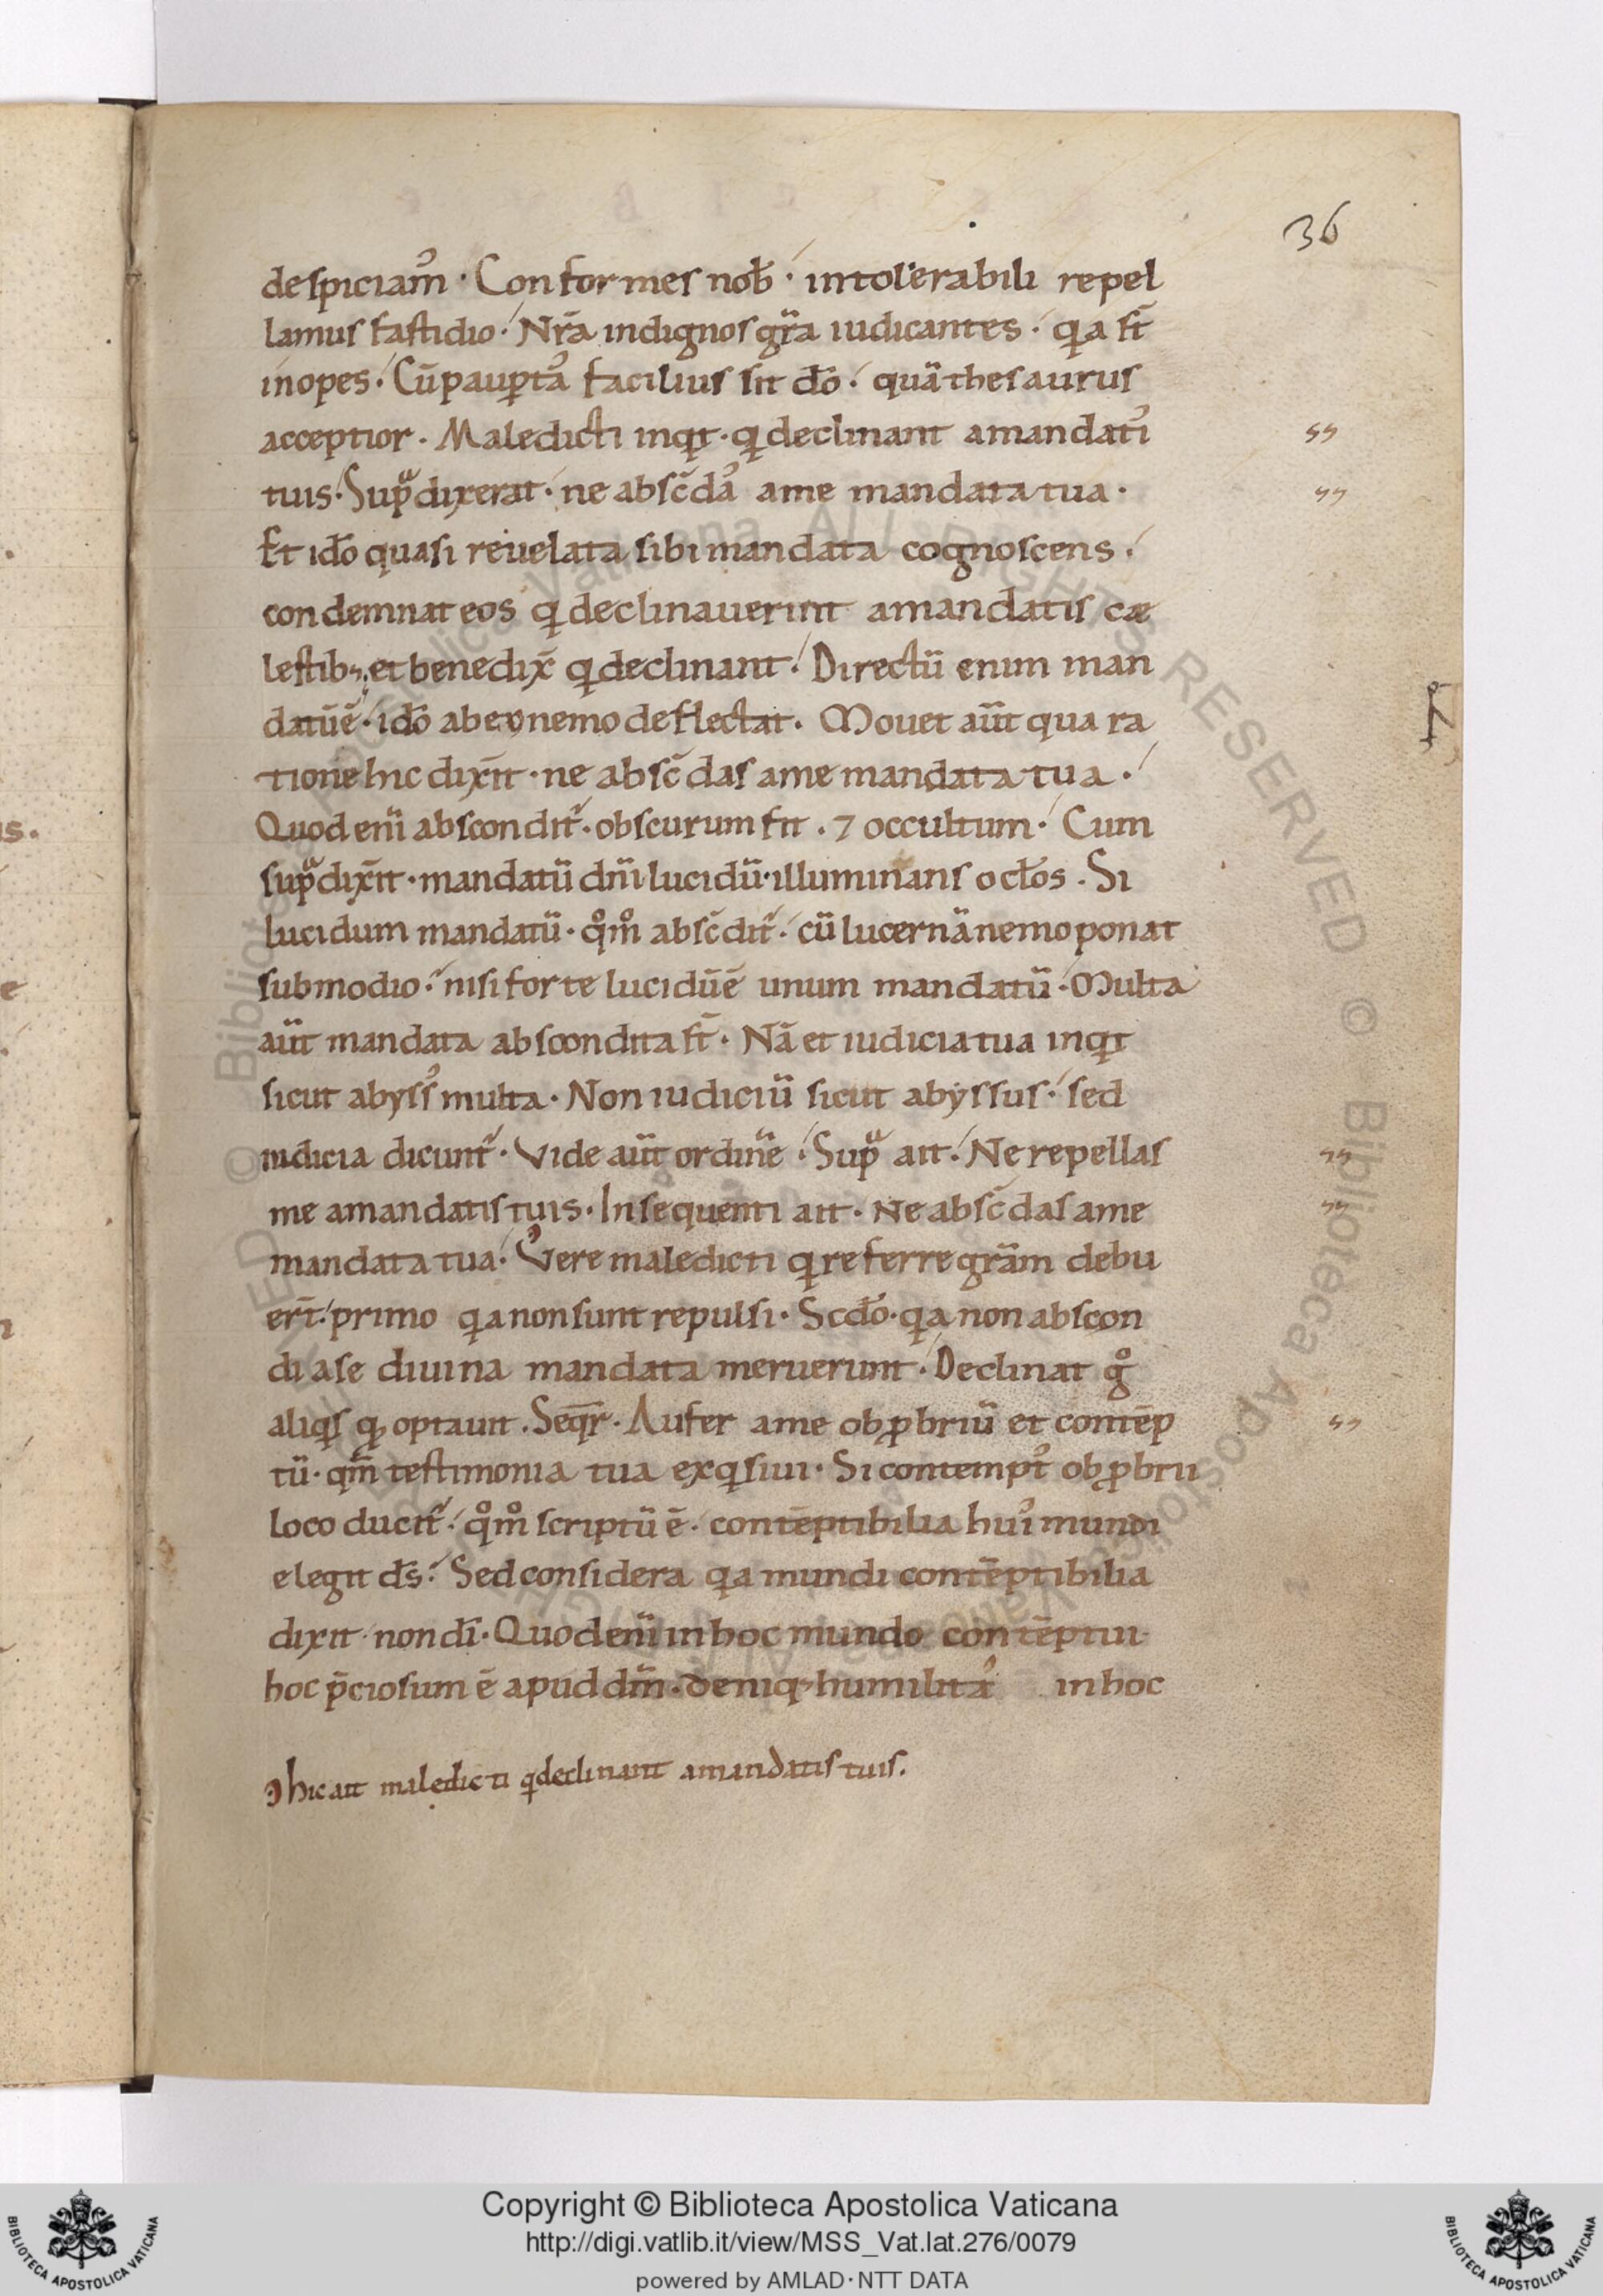 36
despiciam᷒ · Conformes nob̅ · intolerabili repel
lamus fastidio · Nr̅a indignos gr̅a iudicantes · qa st̅
inopes · Cu̅ paup̲ta᷒ facilius sit do̅ · qua̅ thesaurus
acceptior · Maledicti inqt · q declinant amandati᷒
tuis · Sup̲ᵃ dixerat · ne absc̅da᷒ ame mandata tua ·
Et ido̅ quasi reuelata sibi mandata cognoscens ·
condemnat eos q declinauerint amandatis cæ
lestib; et benedix̅ q declinant · Directu̅ enim man
datu̅ e̅ · ido̅ ab eo nemo deflectat · Mouet aut̅ qua ra
tione hic dix̅it · ne absc̅das ame mandata tua ·
Quod eni̅ abscondit᷑ · obscurum fit · ⁊ occultum · Cum
sup̲ᵃ dix̅it · mandatu̅ dn̅i lucidu̅ · illumina̅s oc̅los · Si
lucidum mandatu̅ · qᵒmᵒ absc̅dit᷑ · cu̅ lucerna̅ nemo ponat
submodio · nisi forte lucidu̅ e̅ unum mandatu̅ · Multa
aut̅ mandata abscondita st̅ · Na̅ et iudicia tua inqt
sicut abyss᷒ multa · Non iudiciu̅ sicut abyssus · sed
iudicia dicunt᷑ · Vide aut̅ ordine̅ · Sup̲ᵃ ait · Ne repellas
me amandatis tuis · Insequenti ait · Ne absc̅das ame
mandata tua · Vere maledicti q referre gr̅am debu
er̅t · primo qa non sunt repulsi · Scd̅o · qa non abscon
di ase diuina mandata meruerunt · Declinat gᵒ
aliqs qꝫ optauit · Seqr̅ · Aufer ame obꝓbriu̅ et conte̅p
tu̅ · qm̅ testimonia tua exqsiui · Si contempt᷒ obꝓbrii
loco ducit᷑ · qᵒmᵒ scriptu̅ e̅ · conte̅ptibilia hui᷒ mundi
elegit ds̅ · Sed considera qa mundi conte̅ptibilia
dixit non di̅ · Quod eni̅ in hoc mundo conte̅ptui
hoc p̅ciosum e̅ apud dm̅ · deniqꝫ humilita᷒ in hoc
hic ait maledicti q declinant amandatis tuis.
Copyright © Biblioteca Apostolica Vaticana
http://digi.vatlib.it/view/MSS_Vat.lat.276/0079
powered by AMLAD·NTT DATA
BIBLIOTECA APOSTOLICA VATICANA
BIBLIOTECA APOSTOLICA VATICANA